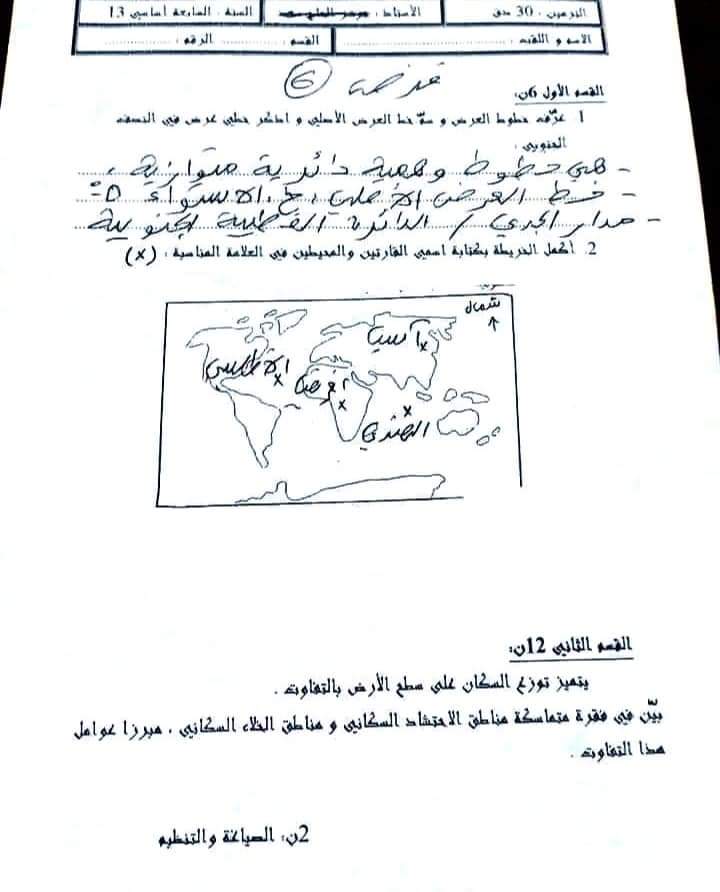 التوقيت : 30 دق
الأستاذ :
السنة : السابعة أساسي 13
الاسم و اللقب :
القسم :
الرقم :
فرض 6
القسم الأول 6ن:
1 عرّف خطوط العرض و سمّ خط العرض الأصلي و اذكر خطي عرض في النصف
الجنوبي .
- هي خطوط وهمية دائرية متوازية .
- خط العرض الأصلي : خ. الاستواء 0°
- مدار الجدي / الدائرة القطبية الجنوبية
2. أكمل الخريطة بكتابة اسمي القارتين والمحيطين في العلامة المناسبة : (x)
شمال
آسيا
الأطلسي
افريقيا
الهندي
القسم الثاني 12ن:
يتميز توزع السكان على سطح الأرض بالتفاوت .
بيّن في فقرة متماسكة مناطق الاحتشاد السكاني و مناطق الخلاء السكاني ، مبرزا عوامل
هذا التفاوت .
2ن: الصياغة والتنظيم